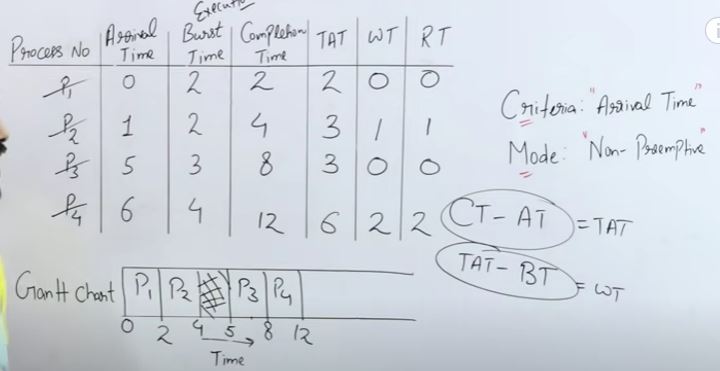 Executi
Process No Arrival Time Burst Time Completion Time TAT WT RT
P1 0 2 2 2 0 0
P2 1 2 4 3 1 1
P3 5 3 8 3 0 0
P4 6 4 12 6 2 2
Criteria: "Arrival Time"
Mode: "Non-Preemptive"
CT - AT = TAT
TAT - BT = WT
Gantt Chart P1 P2 P3 P4
0 2 4 5 8 12
Time